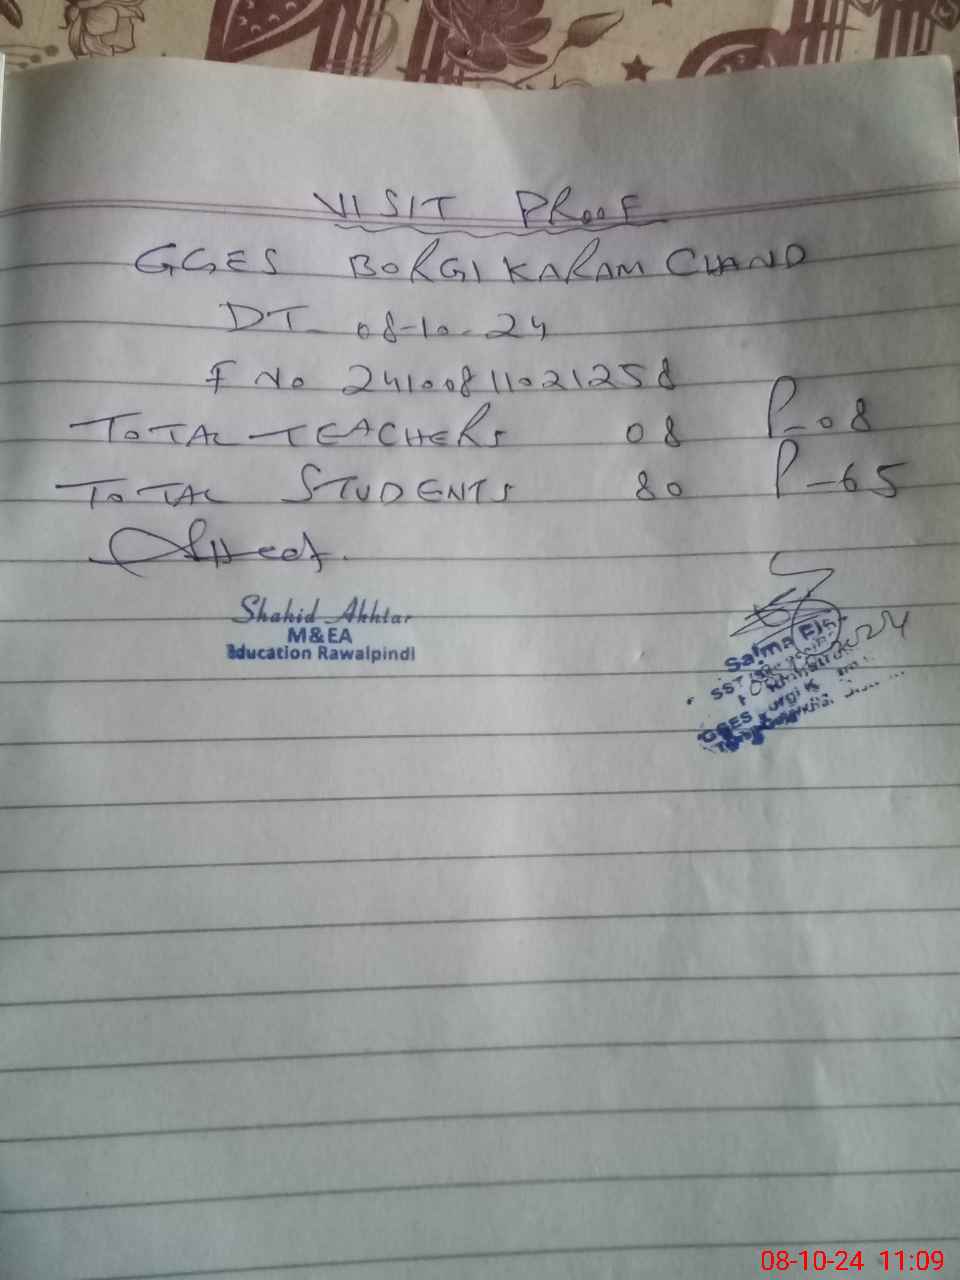 VISIT PROOF
GGES BORGI KARAM CHAND
DT- 08-10-24
F No 24100811021258
TOTAL TEACHERS 08 P-08
TOTAL STUDENTS 80 P-65
Shahid Akhtar
M&EA
Education Rawalpindi
Salma
SST
GGES
08-10-24 11:09